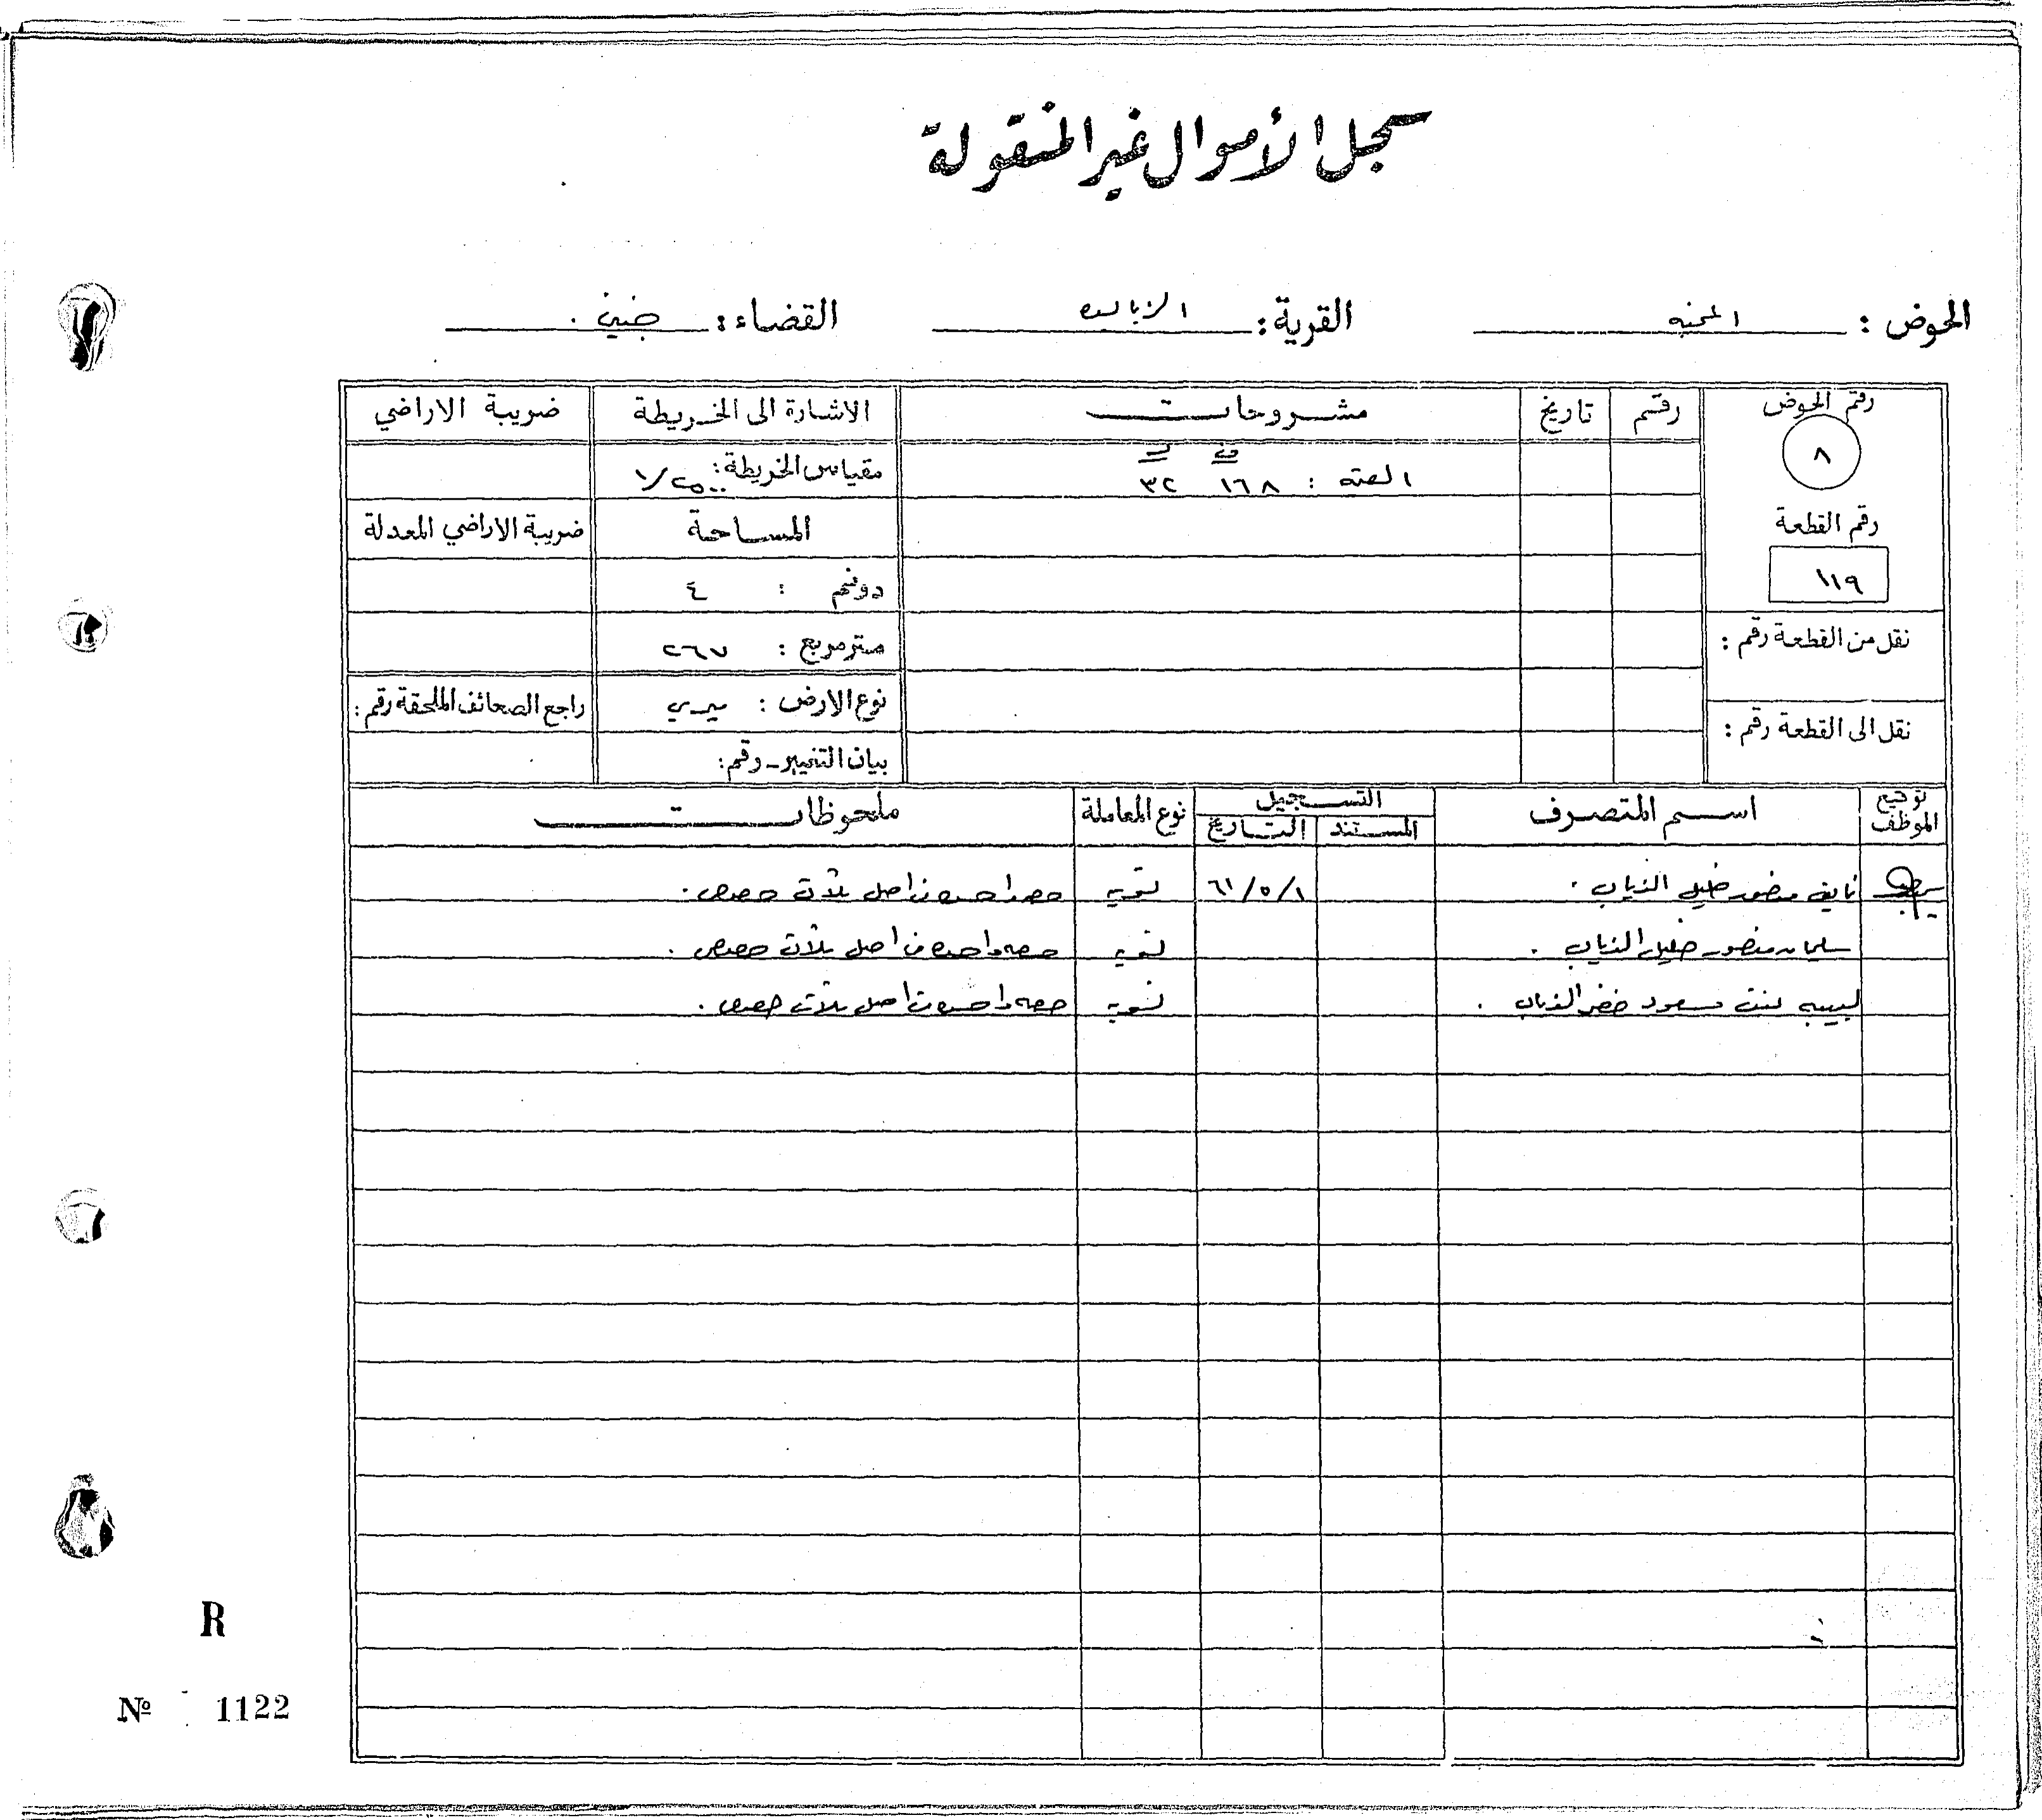 سجل الأموال غير المنقولة
الحوض : القرية : الزبابده القضاء : جنين .
رقم الحوض رقم تاريخ مشروحات الاشارة الى الخريطة ضريبة الاراضي
٨
ف د
: ١٦٨ ٣٢
مقياس الخريطة : ١/٢٥٠٠
رقم القطعة
١١٩
المساحة
ضريبة الاراضي المعدلة
دونم : ٤
نقل من القطعة رقم :
متر مربع : ٢٦٧
نوع الارض : ميري
راجع الصحائف الملحقة رقم :
نقل الى القطعة رقم :
بيان التغيير - رقم :
توقيع الموظف اسم المتصرف التسجيل نوع المعاملة ملحوظات
المستند التاريخ
نايف منصور خليل الذياب . ١/٥/٦١ تسويه حصه واحده من اصل ثلاث حصص .
سليمان منصور خليل الذياب . تسويه حصه واحده من اصل ثلاث حصص .
لبيبه بنت مسعود خضر الذياب . تسويه حصه واحده من اصل ثلاث حصص .
R
Nº 1122